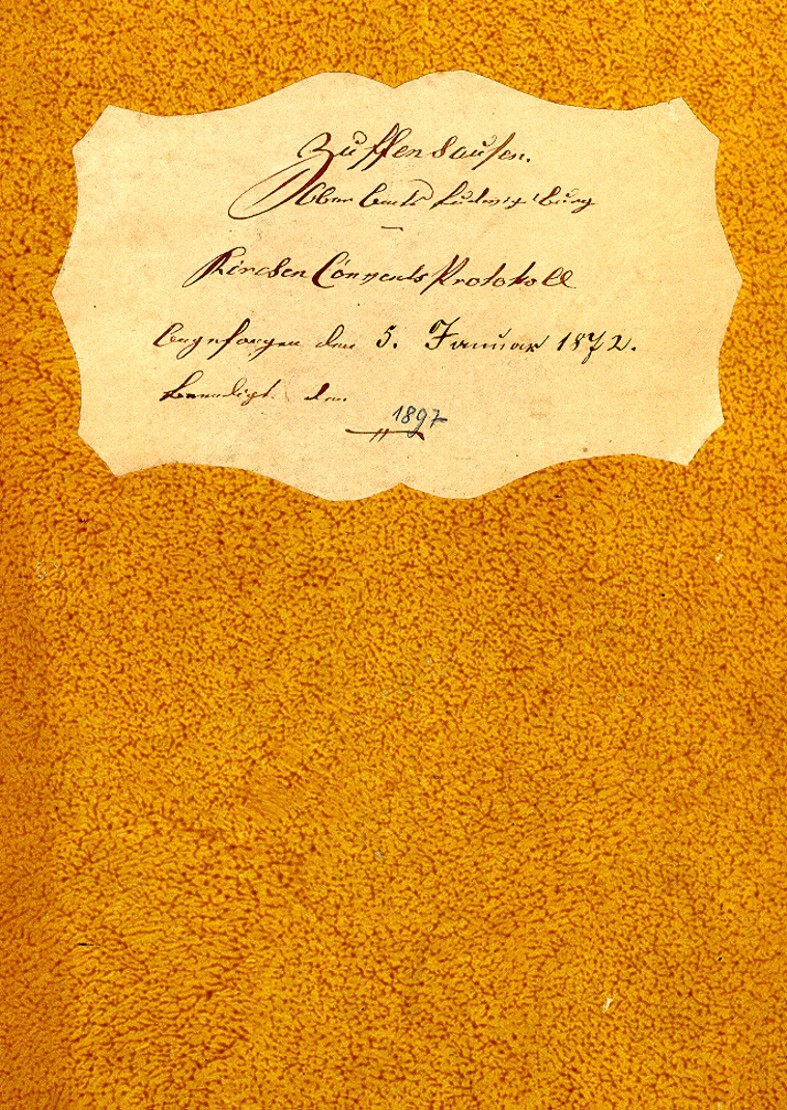 Zuffenhausen.
Oberamts Ludwigsburg
Kirchen Convents Protokoll
Angefangen den 5. Januar 1872.
Beendigt den
1897